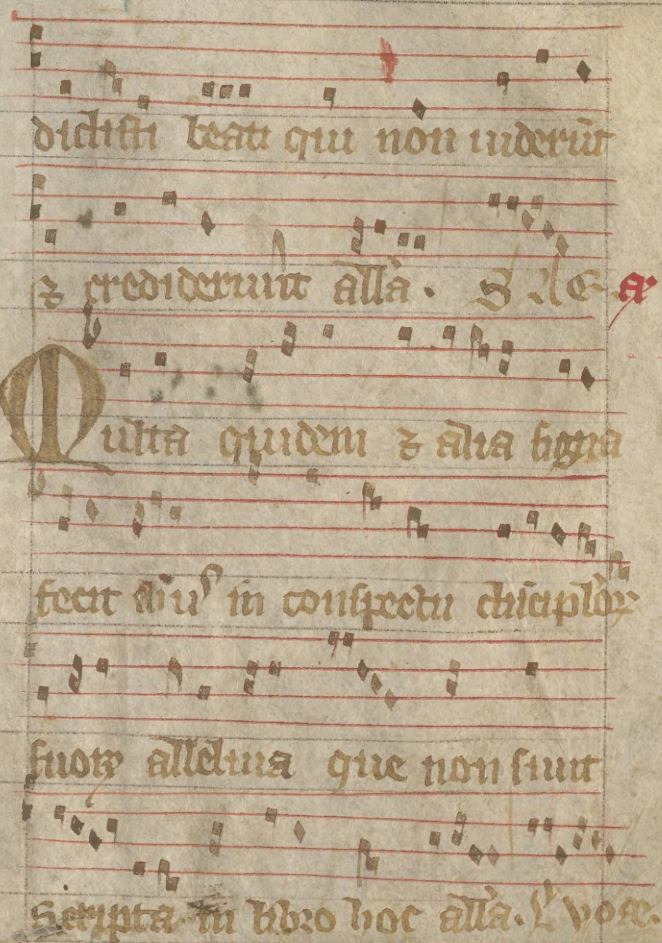 dicisti beati qui non uiderūt
⁊ crediderunt alła. S A E. a͞
Multa quidem ⁊ alia signa
fecit dn̄s in conspectu discipłoꝝ
suoꝝ alleluia que non sunt
Scripta in libro hoc alła. Ꝟ vo ae.